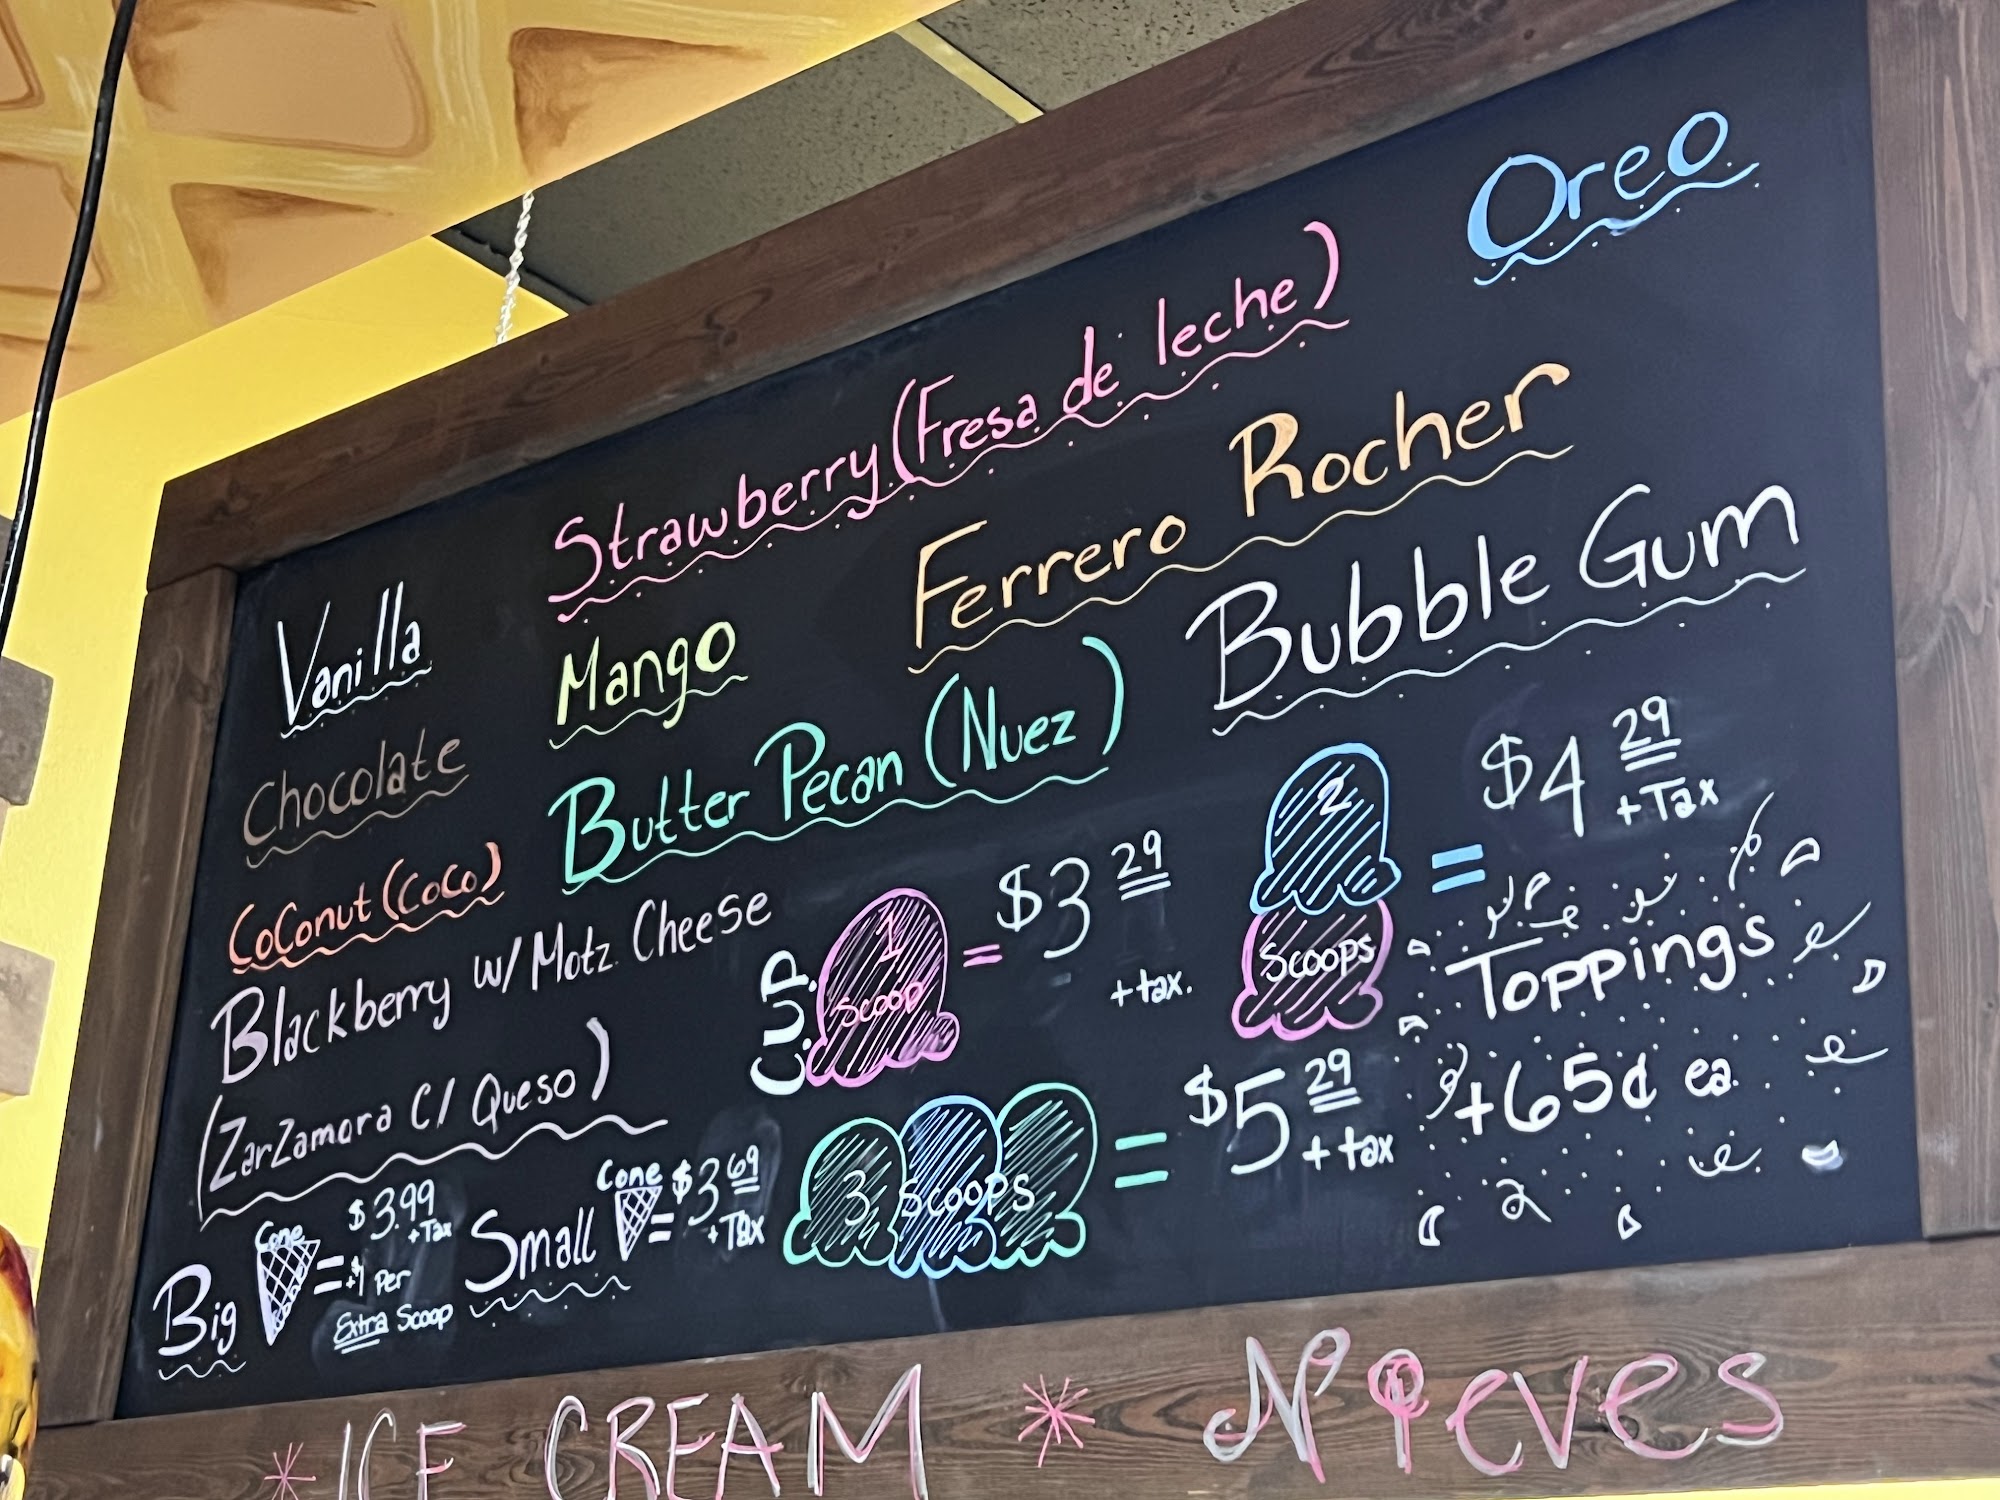 Oreo
Strawberry (Fresa de leche)
Ferrero Rocher
Vanilla
Mango
Bubble Gum
Chocolate
Butter Pecan (Nuez)
CoConut (CoCo)
Blackberry w/ Motz. Cheese
(ZarZamora C/ Queso)
CUP
1 Scoop = $3 29 + tax.
2 Scoops = $4 29 + Tax
3 Scoops = $5 29 + tax
Toppings
+65¢ ea.
Big Cone = $3.99 + Tax
+$1 Per
Extra Scoop
Small Cone = $3 69 + Tax
ICE CREAM * Nieves